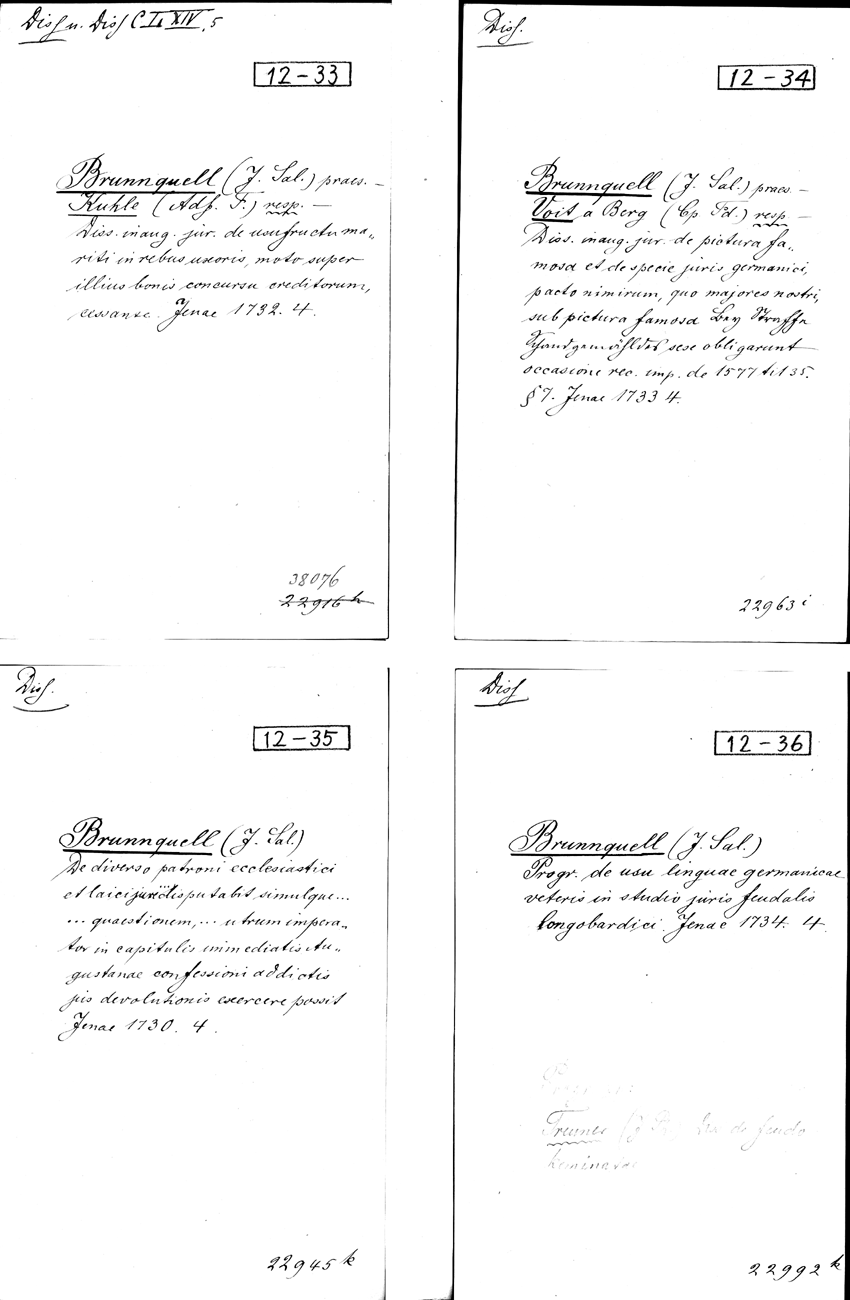 Diss u. Diss C. I. XIV, 5
12-33
Brunnquell (J. Sal.) praes. —
Kuhle (Adf. F.) resp. —
Diss. inaug. jur. de usufructu ma„
riti in rebus uxoris, moto super
illius bonis concursu creditorum,
cessante. Jenae 1732. 4.
38076
22916 h
Diss.
12-34
Brunnquell (J. Sal.) praes. —
Voit a Berg (Cp. Fd.) resp —
Diss. inaug. jur. de pictura fa„
mosa et de specie juris germanici,
pacto nimirum, quo majores nostri,
sub pictura famosa Bey Straffe
Schandgemähldes sese obligarunt
occasione rec. imp. de 1577 tit 35.
§ 7. Jenae 1733 4.
22963 i
Diss.
12-35
Brunnquell (J. Sal.)
De diverso patroni ecclesiastici
et laici jure disputabit, simulque...
... quaestionem, ... utrum impera„
tor in capitulis immediatis Au„
gustanae confessioni addictis
jus devolutionis exercere possit
Jenae 1730. 4.
22945 k
Diss
12-36
Brunnquell (J. Sal.)
Progr. de usu linguae germanicae
veteris in studio juris feudalis
longobardici. Jenae 1734. 4.
de feudo
22992 k